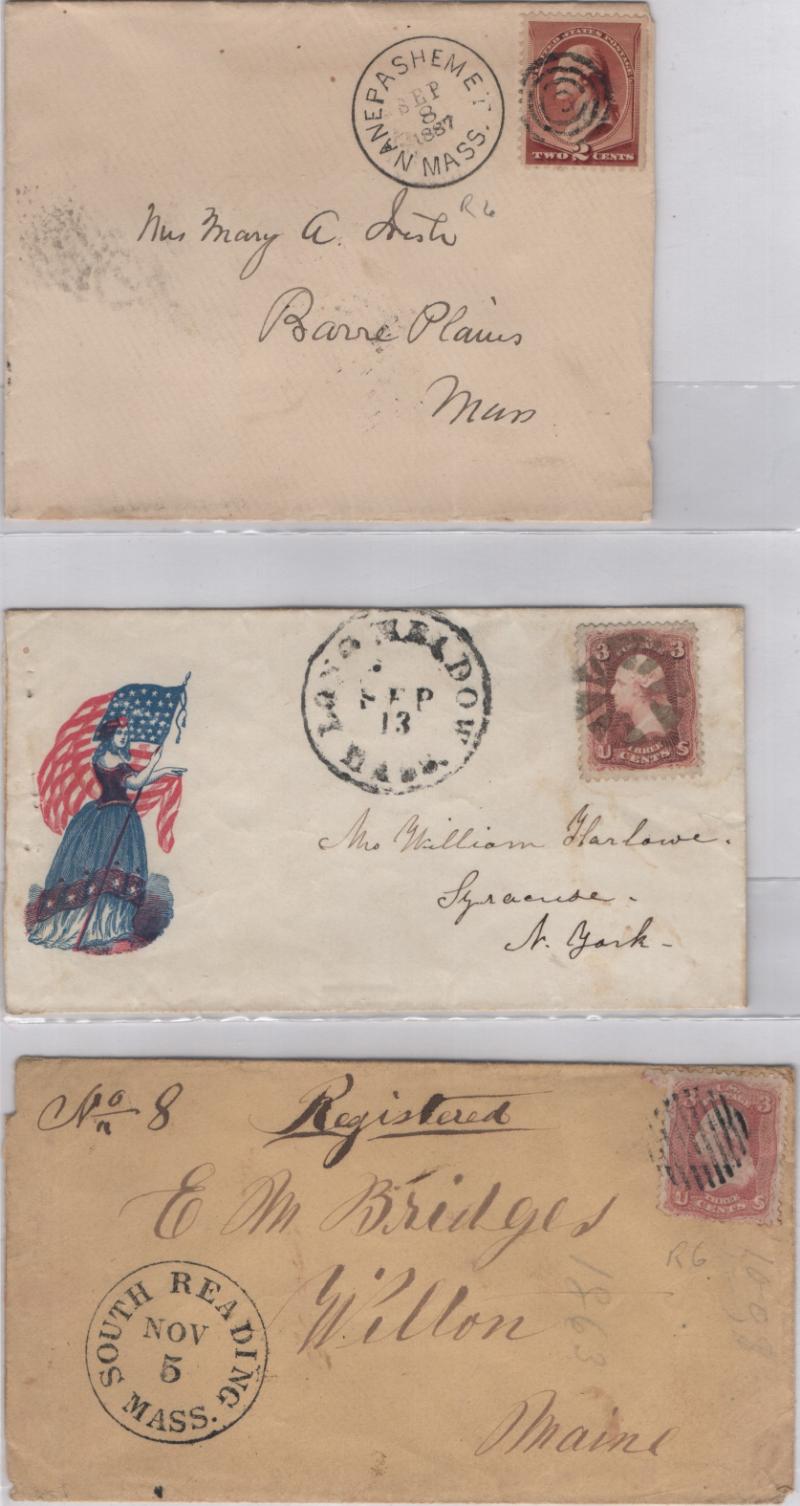 NANEPASHEMET
SEP
8
1887
MASS.
UNITED STATES POSTAGE
TWO 2 CENTS
R6
Mrs Mary A.
Barre Plains
Mass
LONG MEADOW
SEP
13
MASS.
3 3
U THREE CENTS S
William Harlowe.
Syracuse.
N. York-
No 8 Registered
3 3
U THREE CENTS S
E M Bridges
R6
1863
Wilton
SOUTH READING
NOV
5
MASS.
Maine